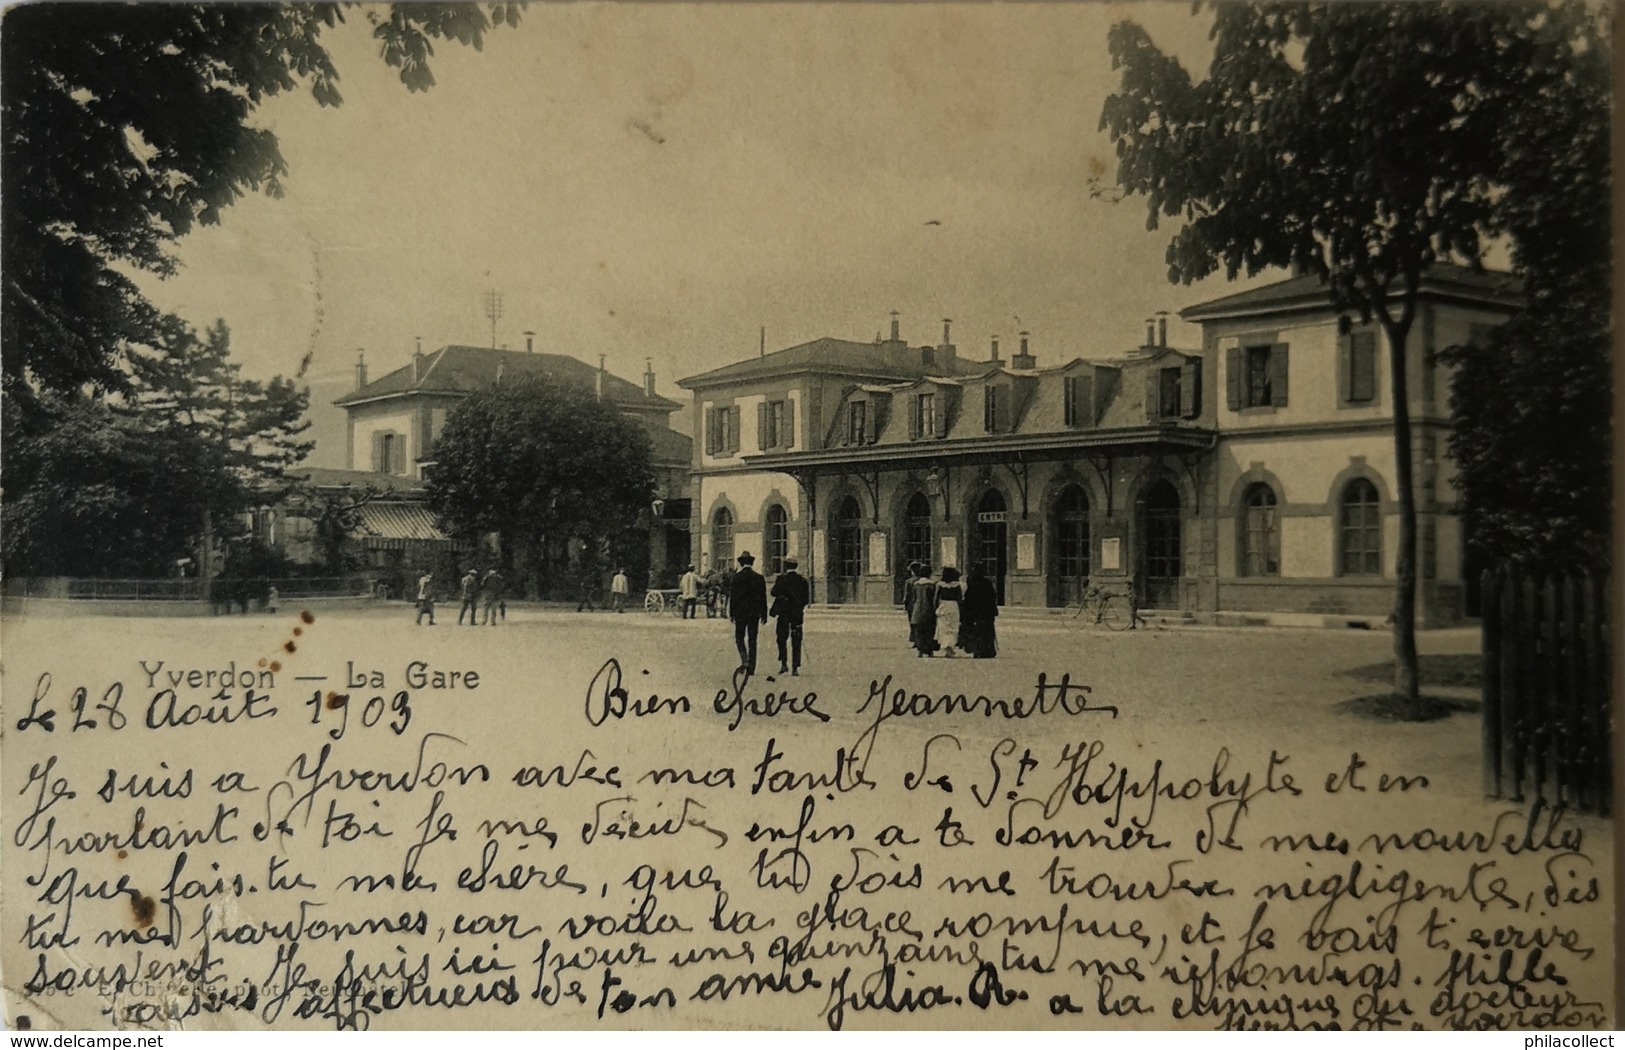 ENTRÉ
Yverdon — La Gare
Le 28 Août 1903 Bien chère Jeannette
Je suis a Yverdon avec ma tante de St. Hippolyte et en
parlant de toi je me decide enfin a te donner de mes nouvelles
que fais-tu ma chère, que tu dois me trouver négligente, dis
tu me pardonnes, car voila la glace rompue, et je vais t'ecrire
souvent. Je suis ici pour une quinzaine, tu me répondras. Mille
baisers affectueux de ton amie Julia. R. a la clinique du docteur
Yverdon
phot. Neuchâtel
www.delcampe.net
philacollect